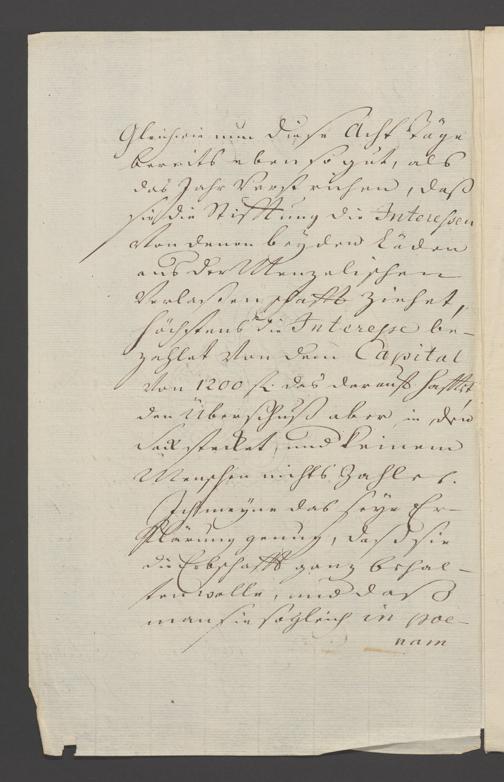 Gleichwie nun diese Acht Täge
bereits eben so gut, als
das Jahr verstrichen, daß
sie die Stifftung die Interessen
von denen beyden Läden
aus der Menzelischen
Verlassenschafft ziehet,
höchstens die Interesse be-
zahlet von dem Capital
von 1200 fl. das darauf hafftet
den Überschuß aber in den
Sack stecket, und keinem
Menschen nichts zahlet.
Ich meyne das seye Er-
klärung genug, daß sie
die Erbschafft ganz behal-
ten wolle, und daß
man sie sogleich in poe-
nam